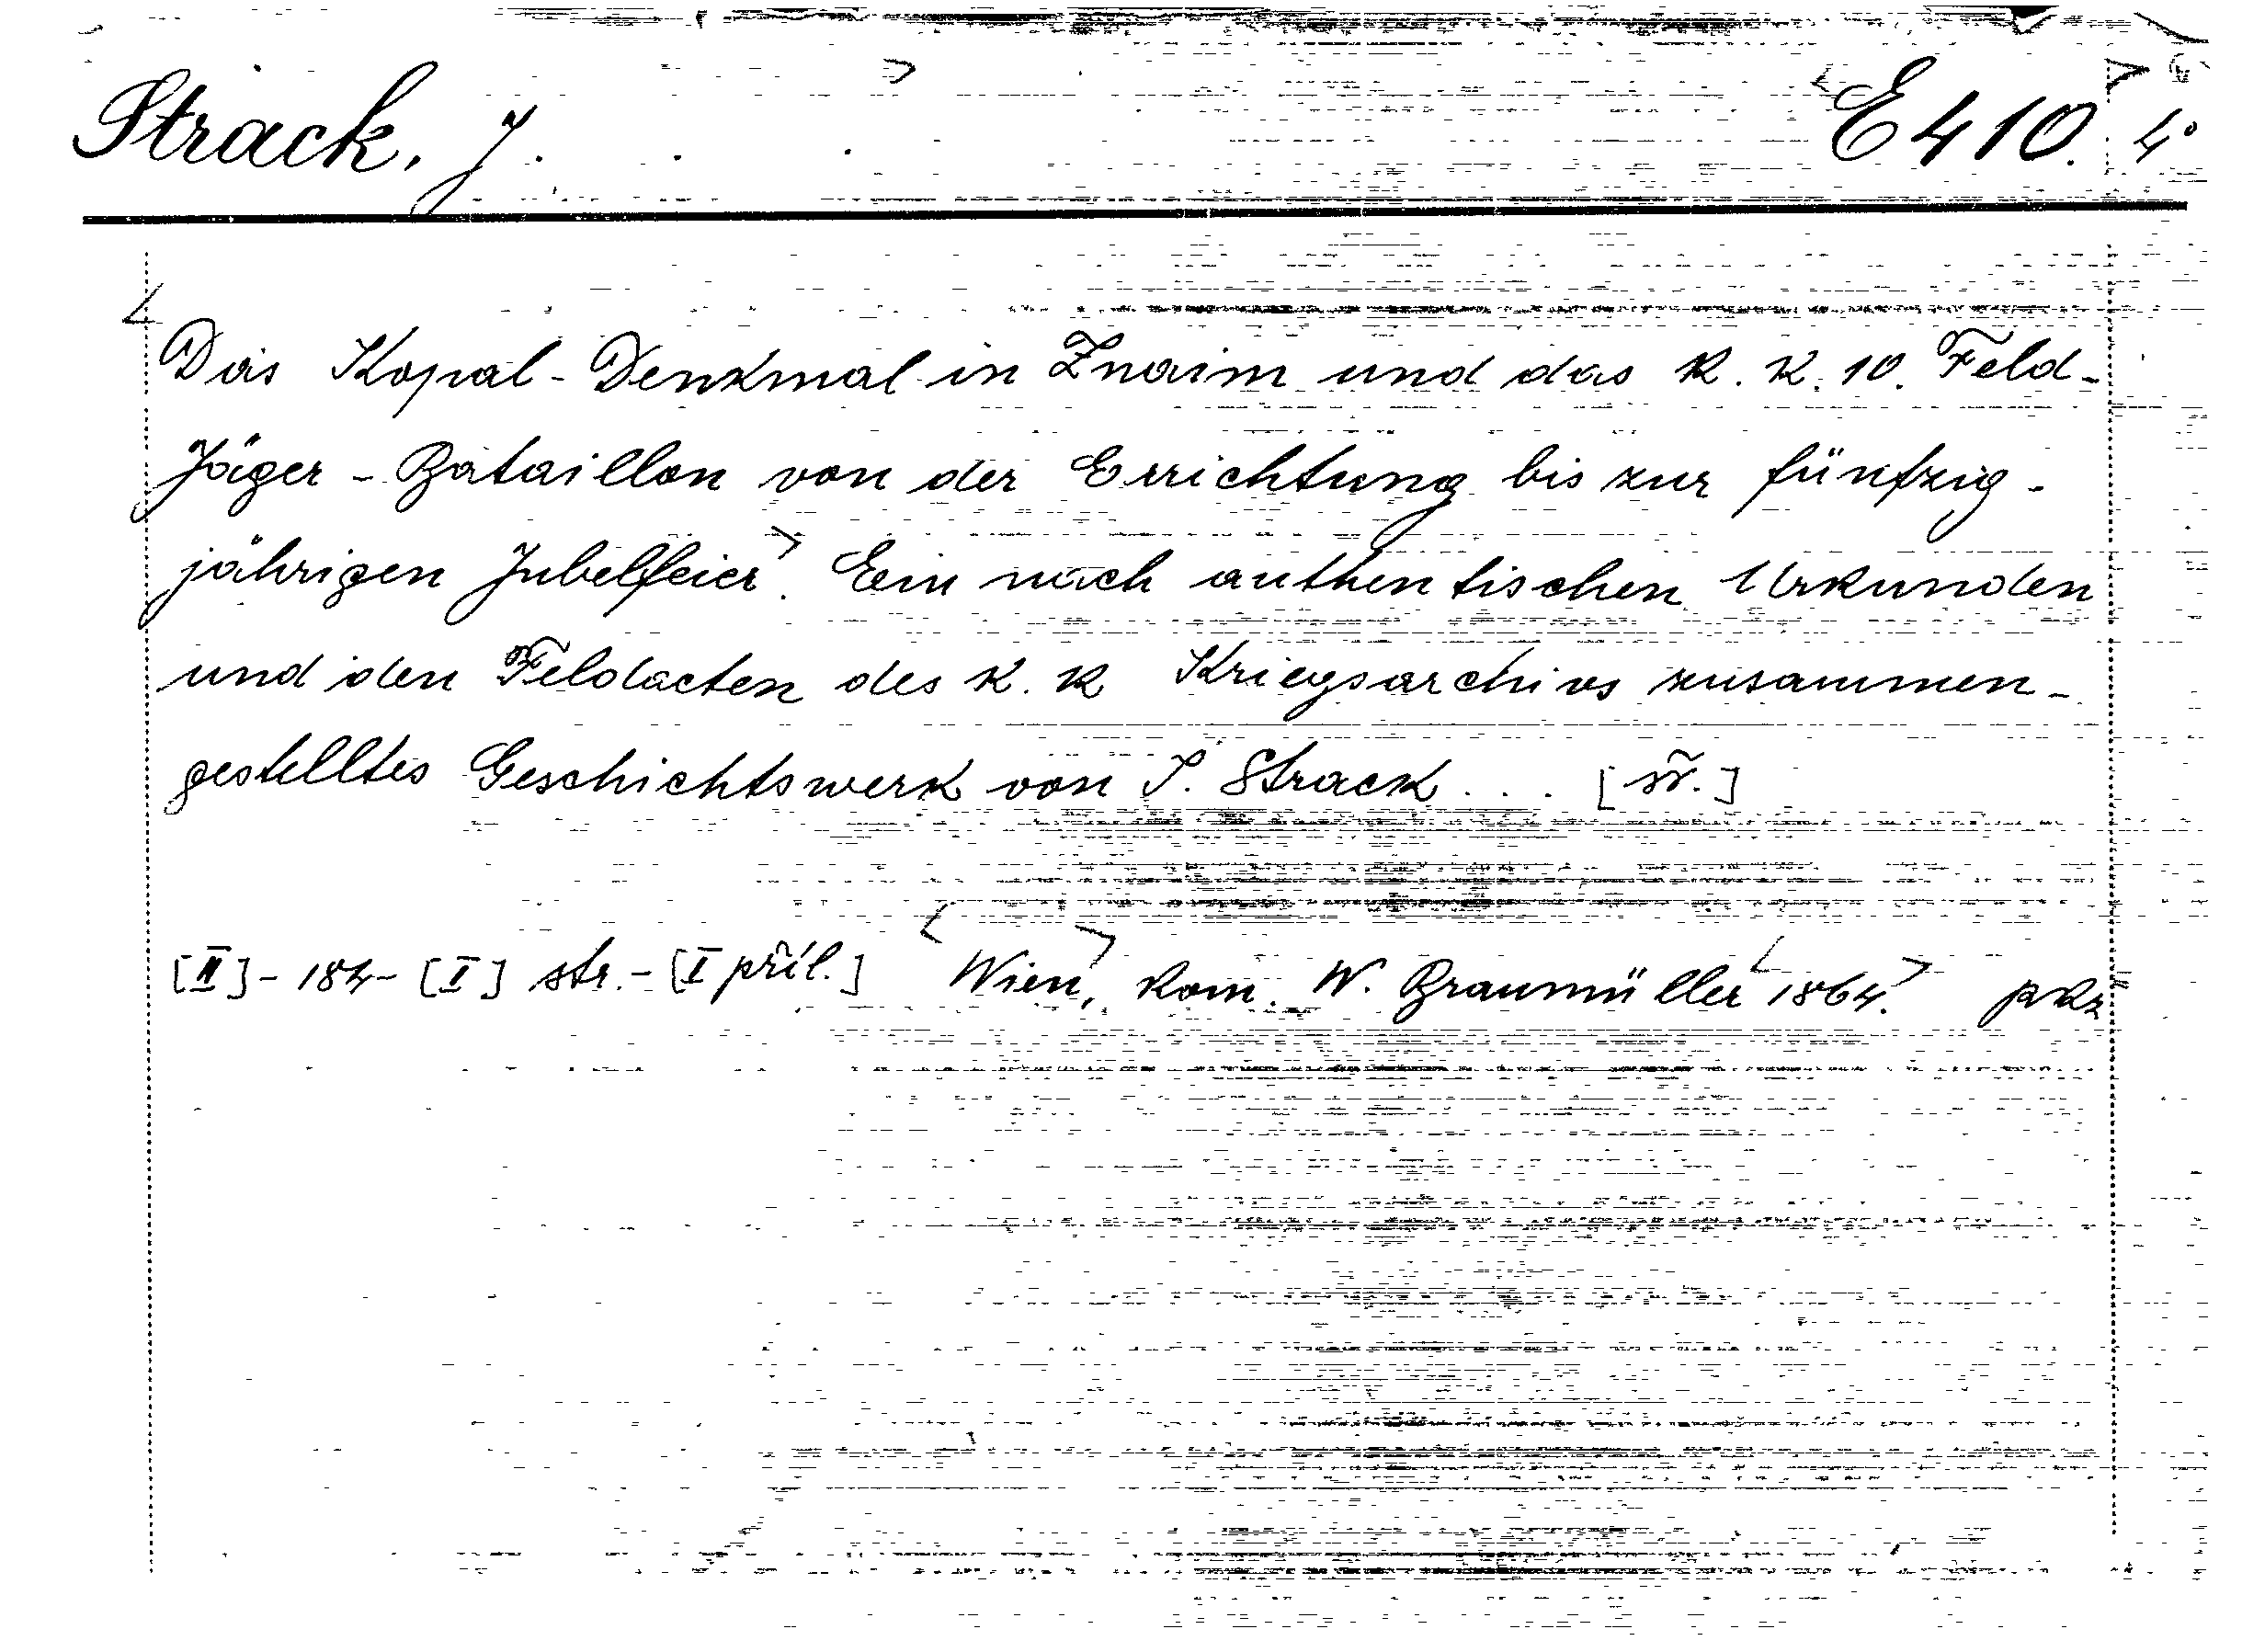 Strack, J. E 410. 4°
Das Kopal-Denkmal in Znaim und das k. k. 10. Feld-
Jäger-Bataillon von der Errichtung bis zur fünfzig-
jährigen Jubelfeier. Ein nach authentischen Urkunden
und den Feldacten des k. k Kriegsarchivs zusammen-
gestelltes Geschichtswerk von J. Strack ...
[II]-184-[I] str.-[I příl.] Wien, kom. W. Braumüller 1864.